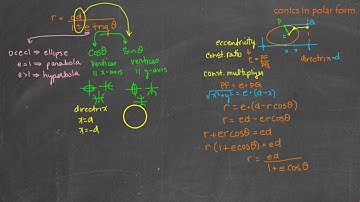 conics in polar form
r = ed / (1 + e trig θ)
0<e<1 ⇒ ellipse
e=1 ⇒ parabola
e>1 ⇒ hyperbola
cosθ
vertices
|| x-axis
sinθ
vertices
|| y-axis
directrix
x=d
x=-d
eccentricity
const. ratio
e = PF/PQ
directrix=d
const. multiplier
PF = e·PQ
√x²+y² = e·(d-x)
r = e·(d-r cosθ)
r = ed-er cosθ
r+er cosθ = ed
r(1+e cosθ) = ed
r = ed / (1+e cosθ)